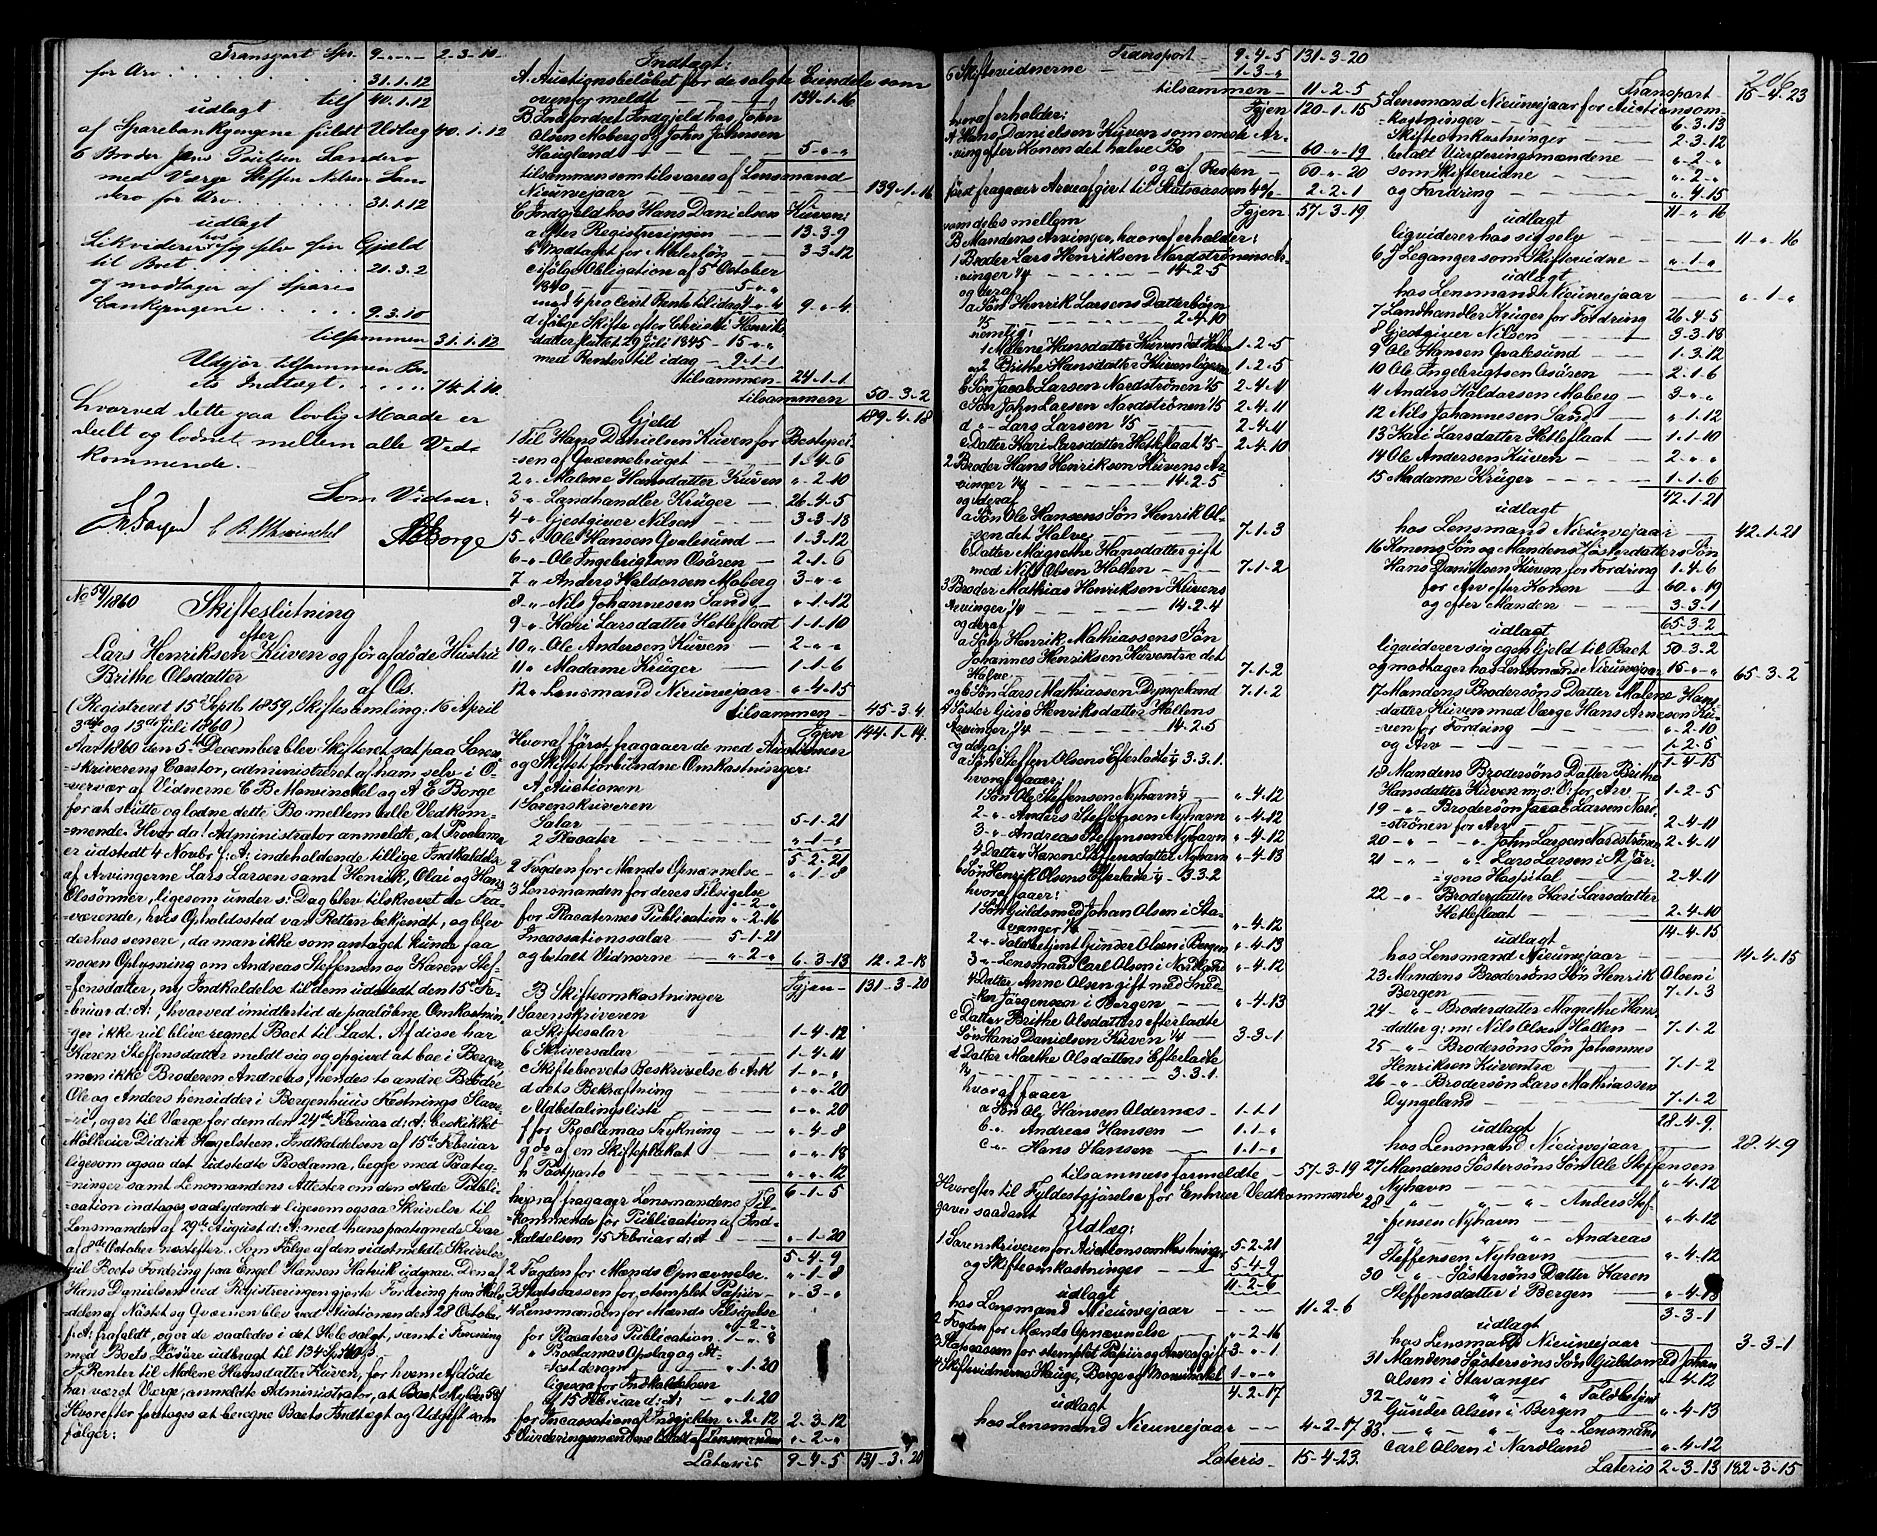 Transport Spr. 9-"-" 2-3-10
for Arv 31.1.12
tils 40.1.12
udlagt
af Sparebankpengene fuldt Udlæg 40.1.12
6 Broder Jens Poulsen Sandero
med Værge Steffen Nilsen San-
dero for Arv 31.1.12
udlagt
Likviderer hos sig selv sin Gjeld
til Boet 21.3.2
og modtager af Spare-
bankpengene 9.3.10
tilsammen 31.1.12
Udgjør tilsammen Bo-
ets Indtægt 74.1.10
hvorved dette paa lovlig Maade er
deelt og lodnet mellem alle Ved-
kommende.
Som Vidner:
No 59/1860
Skifteslutning
efter
Lars Henriksen Kuven og før afdøde Hustru
Brithe Olsdatter
af Os.
(Registreret 15 Septb 1859, Skiftesamling: 16 April
3die og 13de Juli 1860)
Aar 1860 den 5te December blev Skifteret sat paa Soren-
=skriverens Contor, administreret af ham selv i O-
vervær af Vidnerne C B Mowinckel og A E Borge
for at slutte og lodne dette Bo mellem alle Vedkom-
=mende. Hvor da Administrator anmeldte, at Proclama
er udstedt 4 Novbr f: A: indeholdende tillige Indkaldelse
af Arvingerne Lars Larsen samt Henrik, Olai og Hans
Olssønner, ligesom under s: Dag blev tilskrevet de Fra-
værende, hvis Opholdssted var Retten bekjendt, og blev
derhos senere, da man ikke som antaget kunde faa
nogen Oplysning om Andreas Steffensen og Karen Stef-
=fensdatter, ny Indkaldelse til dem udstedt den 15de Fe-
=bruar d: A:, hvorved imidlertid de paaløbne Omkostnin-
ger ikke vil blive regnet Boet til Last. Af disse har
Karen Steffensdatter meldt sig og opgivet at boe i Bergen,
men ikke Broderen Andreas, hendes to andre Brødre
Ole og Anders hensidder i Bergenhuus Fæstnings Slave-
=ri, og er til Værge for dem den 24de Februar d: A: beskikket
Didrik Hagelsteen. Indkaldelsen af 15de Februar
ligesom ogsaa det udstedte Proclama, begge med Paateg-
=ninger samt Lensmandens Attester om den skede Publi-
=cation indtages saalydende # ligesom ogsaa Skrivelse til
Lensmanden af 29de August d: A: med hans paategnede Svar
af 8de October næstefter. Som Følge af den sidstmeldte Skrivelse
vil Boets Fordring paa Engel Hansen Hatvik udgaae. Den af
Hans Danielsen ved Registreringen gjorte Fordring paa Halv-
=delen af Nøstet og Qværnen blev ved Auctionen den 28 October
f: A: frafaldt, og er de saaledes i det Hele solgt, samt i Forening
med Boets Løsøre udbragt til
I Renter til Malene Hansdatter Kuven, for hvem Afdøde
har været Værge, anmeldte Administrator, at Boet skylder
Hvorefter foretages at beregne Boets Indtægt og Udgift som
følger:
Indtægt:
A. Auctionsbeløbet for de solgte Eiendele som
ovenfor meldt 134-1-16
B. Indfordret Indgjeld hos John
Olsen Moberg og John Johnsen
Haugland 5-"-"
tilsammen som tilsvares af Lensmand
Nieuwejaar 139-1-16
C Indgjeld hos Hans Danielsen Kuven:
a efter Registreringen 13-3-9
b modtaget for Malerløn 3-3-12
c ifølge Obligation af 5te October
1840 5-"-"
med 4 pro Cent Rente til idag 4-"-4 9-"-4
d ifølge Skifte efter Christi Henriks-
datter sluttet 29 Juli 1845 - 15-"-"
med Renter til idag - 9-1-1
tilsammen 24-1-1
tilsammen 50-3-2
189-4-18
Gjeld
1 Til Hans Danielsen Kuven for Bestyrel-
=sen af Qværnebruget 1-4-6
2 "- Malene Hansdatter Kuven "-2-10
3 "- Landhandler Krüger 26-4-5
4 "- Gjestgiver Nilsen 3-3-18
5 "- Ole Hansen Qvalesund 1-3-12
6 "- Ole Ingebrigtsen Osøren 2-1-6
7 "- Anders Haldorsen Moberg 3-"-"
8 "- Nils Johannesen Sand "-1-12
9 "- Kari Larsdatter Hetleflaat 1-1-10
10 "- Ole Andersen Kuven 2-"-"
11 "- Madame Krüger 1-1-6
12 "- Lensmand Nieuwejaar "-4-15
tilsammen 45-3-4
Igjen 144-1-14
Hvoraf først fragaaer de med Auctionen
og Skiftet forbundne Omkostninger:
A Auctionen
1 Sorenskriveren
Salar 5-1-21
2 Placater "-1-"
5-2-21
2 Fogden for Mænds Opnævnelse "-1-8
3 Lensmanden for deres Tilsigelse
"-2-"
for Placaternes Publication "-2-16
Incassationssalar 5-1-21
og betalt Vidnerne "-2-" 6-3-13 12-2-18
Igjen 131-3-20
B Skifteomkostninger
1 Sorenskriveren
a Skiftesalar 1-4-12
b Skriversalar 1-4-11
c Skiftebrevets Beskrivelse 6 Ark 1-"-"
d dets Bekræftning "-"-20
e Udbetalingsliste "-"-20
f for Proclamas Trykning "-4-8
g do af en Skifteplakat "-"-18
h Postporto "-"-12
6-1-5
hvoraf fragaaer Lensmandens Til-
=kommende for Publication af Ind-
=kaldelsen 15 Februar d: A "-1-20
5-4-9
2 Fogden for Mænds Opnævnelse "-1-8
3 Statscassen for stemplet Papiir "-3-"
4 Lensmanden for Mænds Tilsigelse
"-2-"
for Placaters Publication 1-"-8
" Proclamas Opslag og At-
test derom "-1-20
ligesaa for Indkaldelsen
af 15 Februar d: A: "-1-20
for Incassation af Indgjelden "-2-12 2-3-12
5 Vurderingsmændene betalt af Lensmanden "-2-"
Lateris 9-4-5 131-3-20
Transport 9-4-5 131-3-20
6 Skiftevidnerne 1-3-"
tilsammen 11-2-5
Igjen 120-1-15
hvoraf erholder:
A Hans Danielsen Kuven som eneste Ar-
ving efter Konen det halve Bo 60-"-19
og af Resten 60-"-20
først fragaaer Arveafgivt til Statscassen 4% 2-2-1
Igjen 57-3-19
som deles mellem
B Mandens Arvinger, hvoraf erholder:
1 Broder Lars Henriksen Nordstrønens Ar-
=vinger 1/4 14-2-5
og deraf
a Søn Henrik Larsens Datterbørn
1/5 2-4-10
nemlig:
1 Malene Hansdatter Kuven det Halve 1-2-5
og 2 Brithe Hansdatter Kuven ligesaa 1-2-5
b Søn Jacob Larsen Nordstrønen 1/5 2-4-11
c Søn John Larsen Nordstrønen 1/5 2-4-11
d "- Lars Larsen 1/5 2-4-11
e Datter Kari Larsdatter Hetleflaat 1/5 2-4-10
2 Broder Hans Henriksen Kuvens Ar-
vinger 1/4 14-2-5
og deraf
a Søn Ole Hansens Søn Henrik Ol-
sen det Halve 7-1-3
b Datter Magrethe Hansdatter gift
med Nils Olsen Hallen 7-1-2
3 Broder Mathias Henriksen Kuvens
Arvinger 1/4 14-2-4
og deraf
a Søn Henrik Mathiassens Søn
Johannes Henriksen Kuventræ det
Halve 7-1-2
og b Søn Lars Mathiassen Dyngeland 7-1-2
4 Søster Guro Henriksdatter Hallens
Arvinger 1/4 14-2-5
og deraf:
a Søn Steffen Olsens Efterladte 1/4 3-3-1
hvoraf faaer:
1 Søn Ole Steffensen Nyhavn 1/4 "-4-12
2 "- Anders Steffensen Nyhavn "-4-12
3 "- Andreas Steffensen Nyhavn "-4-12
4 Datter Karen Steffensdatter Nyhavn "-4-13
b Søn Henrik Olsens Efterladte 1/4 3-3-2
hvoraf faaer:
1 Søn Guldsmed Johan Olsen i Sta-
vanger 1/4 "-4-12
2 "- Toldbetjent Gunder Olsen i Bergen "-4-13
3 "- Lensmand Carl Olsen i Nordland "-4-12
4 Datter Anne Olsen gift med Sned-
=ker Jørgensen i Bergen "-4-13
c Datter Brithe Olsdatters efterladte
Søn Hans Danielsen Kuven 1/4 3-3-1
d Datter Marthe Olsdatters Efterladte
1/4 3-3-1
hvoraf faaer
a Søn Ole Hansen Aldernes 1-1-1
b "- Andreas Hansen 1-1-"
c "- Hans Hansen 1-1-"
tilsammen formeldte 57-3-19
Hvorefter til Fyldestgjørelse for Enhver Vedkommende
gaves saadant
Udlæg:
1 Sorenskriveren for Auctionsomkostninger 5-2-21
og Skifteomkostninger 5-4-9
11-2-6
udlagt
hos Lensmand Nieuwejaar 11-2-6
2 Fogden for Mænds Opnævnelse "-2-16
3 Statscassen for stemplet Papiir og Arveafgift 3-"-1
4 Skiftevidnerne Hauge, Borge og Mowinckel 1-"-"
4-2-17
udlagt
hos Lensmand Nieuwejaar 4-2-17
Lateris 15-4-23
206
Transport 15-4-23
5 Lensmand Nieuwejaar for Auctionsom-
kostninger 6-3-13
Skifteomkostninger 2-3-12
betalt Vurderingsmændene "-2-"
som Skiftevidne "-2-"
og Fordring "-4-15
11-"-16
udlagt
liqviderer hos sig selv 11-"-16
6 J Leganger som Skiftevidne "-1-"
udlagt
hos Lensmand Nieuwejaar "-1-"
7 Landhandler Krüger for Fordring 26-4-5
8 Gjestgiver Nilsen 3-3-18
9 Ole Hansen Qvalesund 1-3-12
10 Ole Ingebrigtsen Osøren 2-1-6
11 Anders Haldorsen Moberg 3-"-"
12 Nils Johannesen Sand "-1-12
13 Kari Larsdatter Hetleflaat 1-1-10
14 Ole Andersen Kuven 2-"-"
15 Madame Krüger 1-1-6
42-1-21
udlagt
hos Lensmand Nieuwejaar 42-1-21
16 Konens Søn og Mandens Søsterdatters Søn
Hans Danielsen Kuven for Fordring 1-4-6
for Arv efter Konen 60-"-19
og efter Manden 3-3-1
65-3-2
udlagt
liqviderer sin egen Gjeld til Boet 50-3-2
og modtager hos Lensmand Nieuwejaar 15-"-" 65-3-2
17 Mandens Brodersøns Datter Malene Hans-
datter Kuven med Værge Hans Arnesen Ku-
=ven for Fordring "-2-10
og Arv 1-2-5
1-4-15
18 Mandens Brodersøns Datter Brithe
Hansdatter Kuven m: s: V: for Arv 1-2-5
19 -"- Brodersøn Jacob Larsen Nord-
=strønen for Arv 2-4-11
20 -"- -"- John Larsen Nordstrønen 2-4-11
21 -"- -"- Lars Larsen i St Jør-
=gens Hospital 2-4-11
22 -"- Broderdatter Kari Larsdatter
Hetleflaat 2-4-10
14-4-15
udlagt
hos Lensmand Nieuwejaar 14-4-15
23 Mandens Brodersøns Søn Henrik Olsen i
Bergen 7-1-3
24 -"- Broderdatter Magrethe Hans-
datter g: m: Nils Olsen Hallen 7-1-2
25 -"- Brodersøns Søn Johannes
Henriksen Kuventræ 7-1-2
26 -"- Brodersøn Lars Mathiassen
Dyngeland 7-1-2
28-4-9
udlagt
hos Lensmand Nieuwejaar 28-4-9
27 Mandens Søstersøns Søn Ole Steffensen
Nyhavn "-4-12
28 " " " Anders Stef-
fensen Nyhavn "-4-12
29 " " " Andreas
Steffensen Nyhavn "-4-12
30 " Søstersøns Datter Karen
Steffensdatter i Bergen "-4-13
3-3-1
udlagt
hos Lensmand Nieuwejaar 3-3-1
31 Mandens Søstersøns Søn Guldsmed Johan
Olsen i Stavanger "-4-12
32 " " " Toldbetjent
Gunder Olsen i Bergen "-4-13
33 " " " Lensmand
Carl Olsen i Nordland "-4-12
Lateris 2-3-13 182-3-15